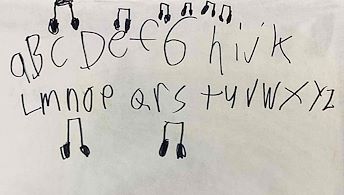 aBcDefG hijk
Lmnop qrs tuvwxyz